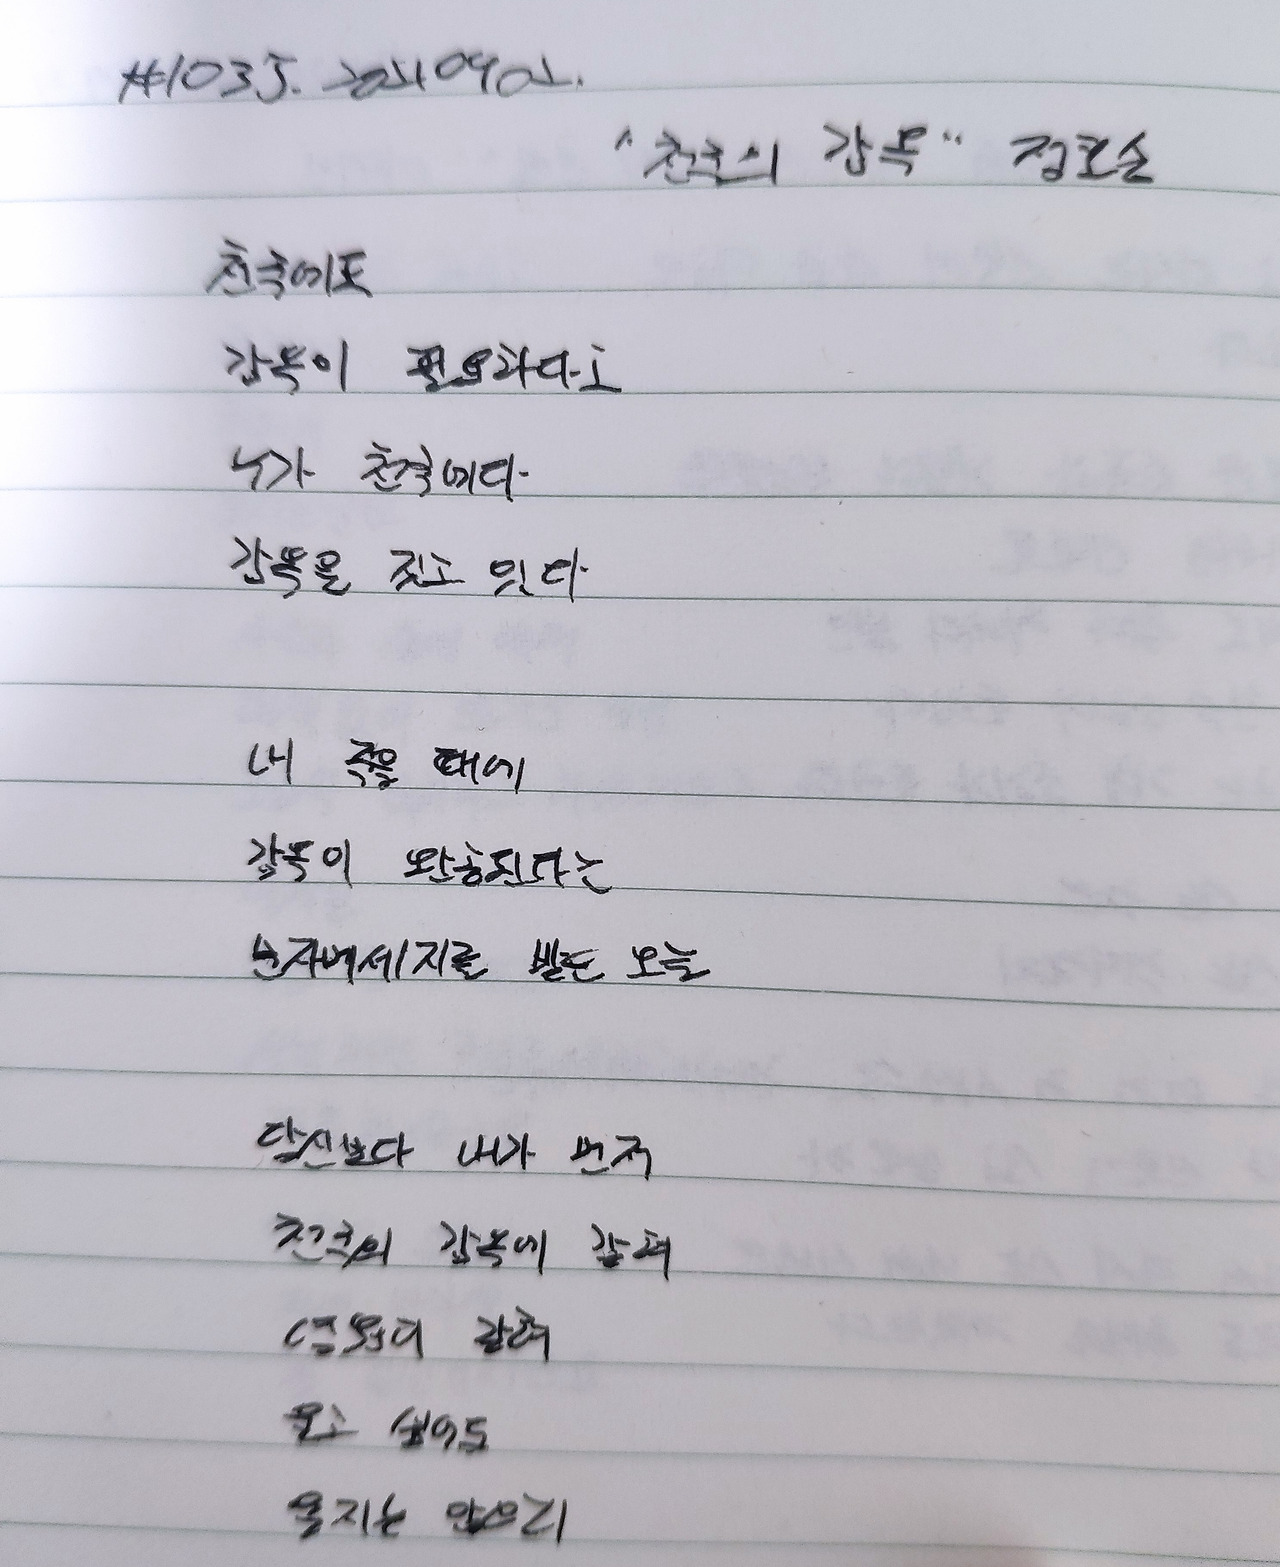 #1035. 20210902.
"천국의 감옥" 정호승
천국에도
감옥이 필요하다고
누가 천국에다
감옥을 짓고 있다
내 죽을 때에
감옥이 완공된다는
문자메세지를 받은 오늘
당신보다 내가 먼저
천국의 감옥에 갇혀
영원히 갇혀
울고 싶어도
울지는 않으리